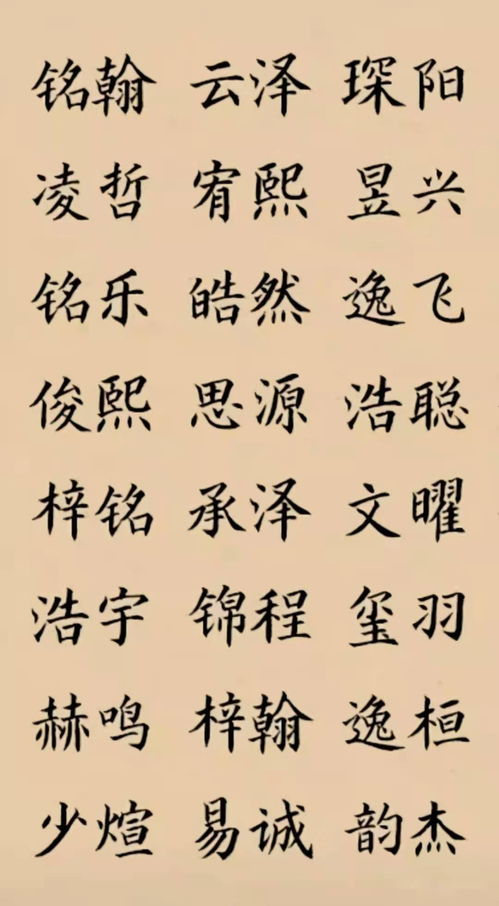 铭翰 云泽 琛阳
凌哲 宥熙 昱兴
铭乐 皓然 逸飞
俊熙 思源 浩聪
梓铭 承泽 文曜
浩宇 锦程 玺羽
赫鸣 梓翰 逸桓
少煊 易诚 韵杰